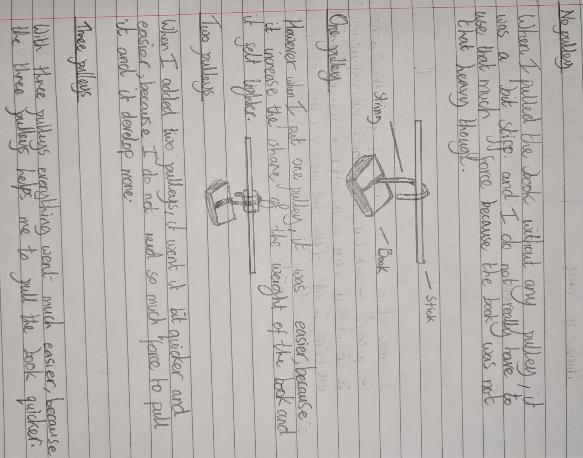 No pulley
When I pulled the book without any pulley, it
was a bit stiff and I do not really have to
use that much force because the book was not
that heavy though.
Stick
String
Book
One pulley
However when I put one pulley, it was easier, because
it increase the share of the weight of the book and
it felt lighter.
Two pulleys
When I added two pulleys, it went it bit quicker and
easier, because I do not need so much force to pull
it and it develop more.
Three pulleys
With three pulleys everything went much easier, because
the three pulleys helps me to pull the book quicker.